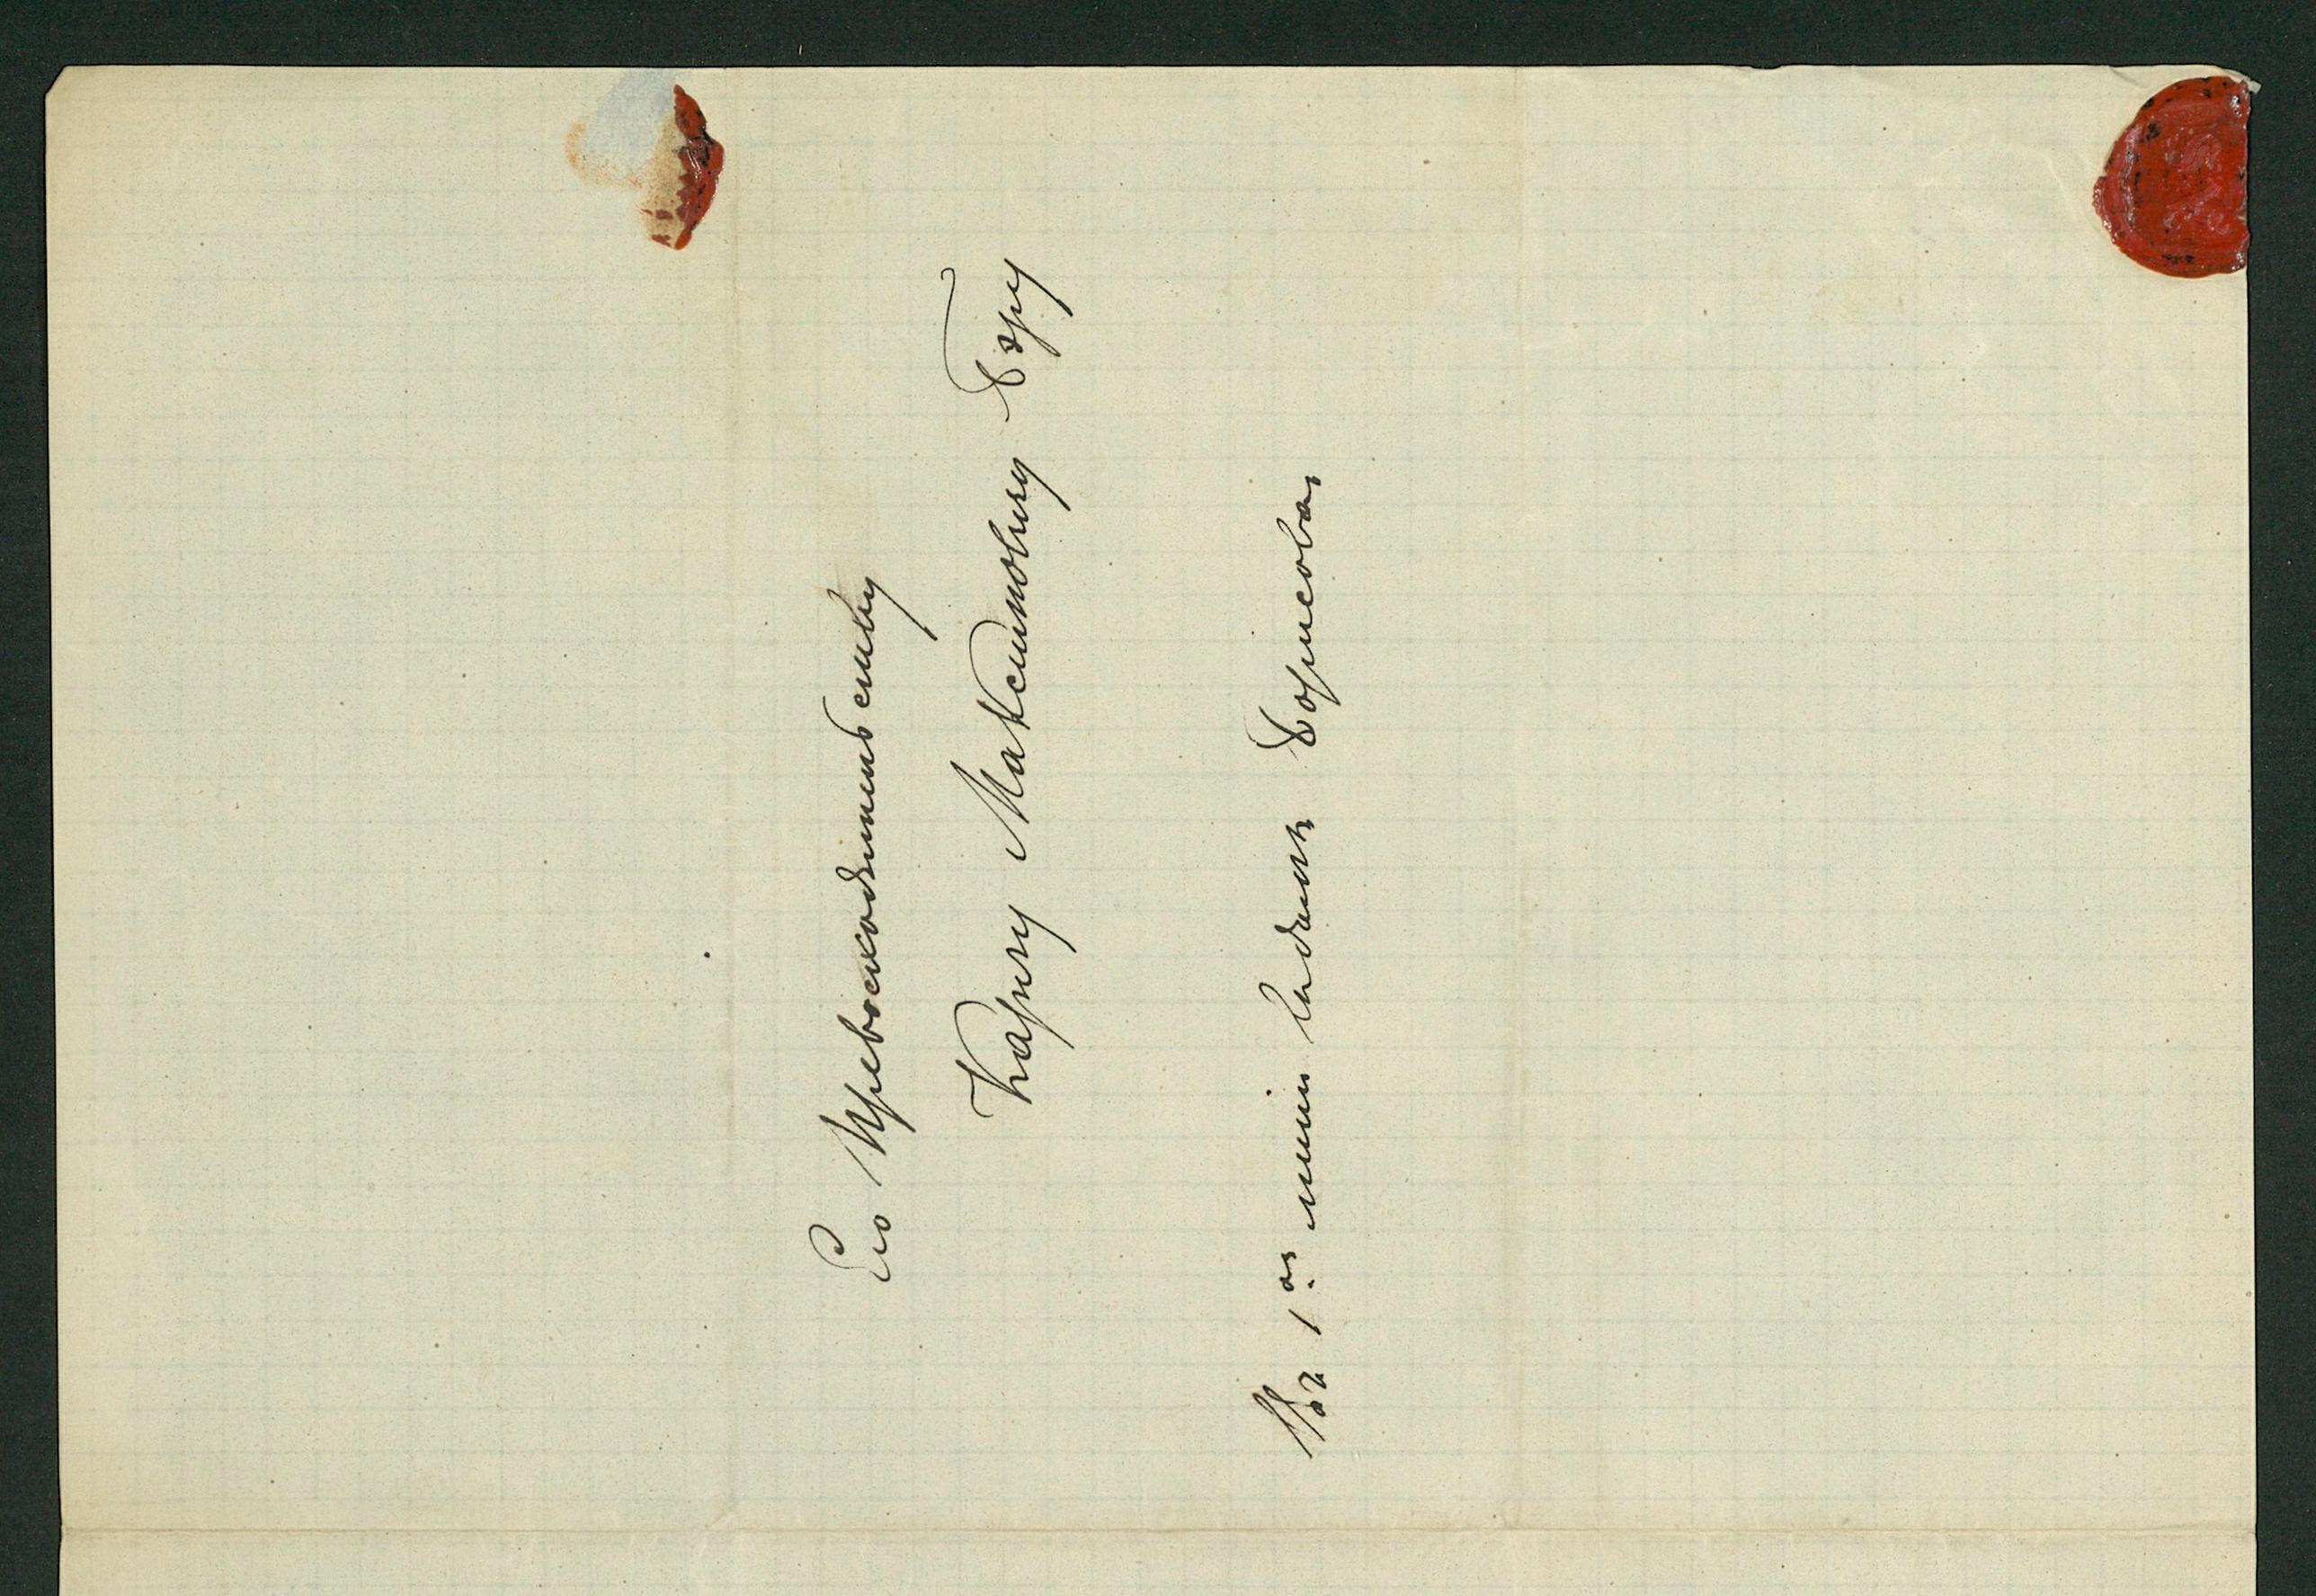 Его Превосходительству
Карлу Максимовичу Бэру
На 1ой линіи въ домѣ Борисова